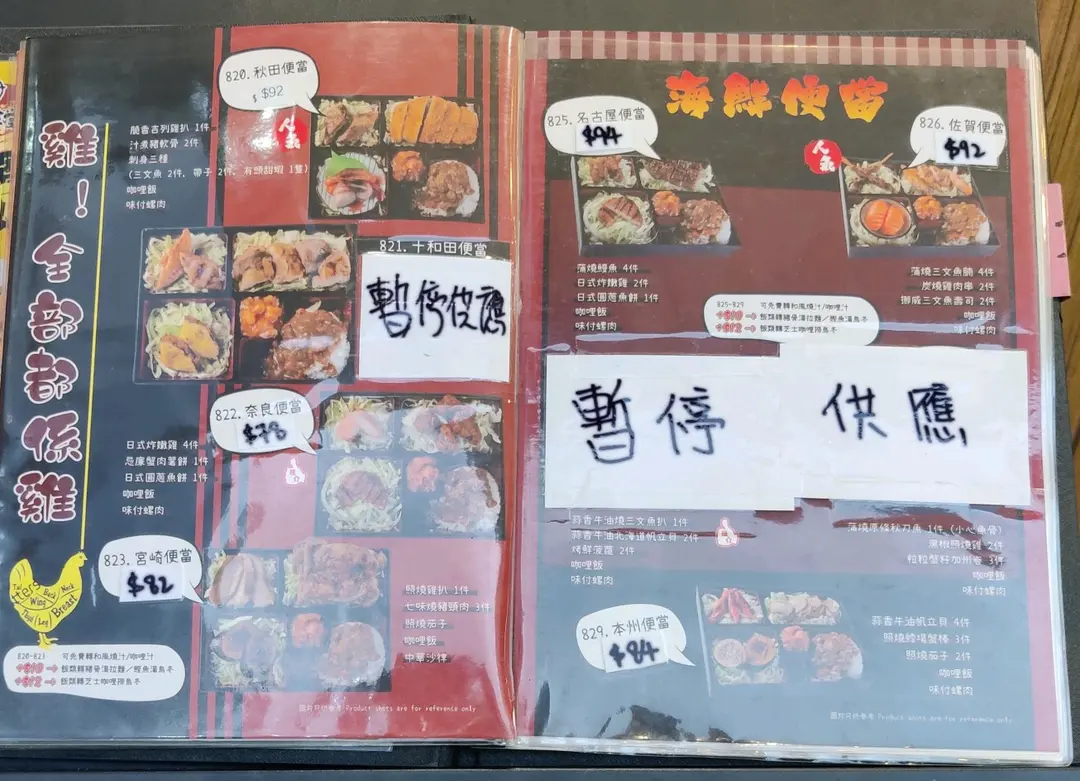 雞！全部都係雞
820. 秋田便當
$92
人氣
脆香吉列雞扒 1件
汁煮豬軟骨 2件
刺身三種
(三文魚 2件, 帶子 2件, 有頭甜蝦 1隻)
咖哩飯
味付螺肉
821. 十和田便當
暫停供應
822. 奈良便當
$78
日式炸嫩雞 4件
忌廉蟹肉薯餅 1件
日式圓蔥魚餅 1件
咖哩飯
味付螺肉
823. 宮崎便當
$82
照燒雞扒 1件
七味燒豬頸肉 3件
照燒茄子
咖哩飯
中華沙律
Wing
Back
Neck
Breast
Leg
820-823 可免費轉和風燒汁/咖哩汁
+$10 → 飯類轉豬骨湯拉麵／鰹魚湯烏冬
+$12 → 飯類轉芝士咖哩撈烏冬
圖片只供參考 Product shots are for reference only
海鮮便當
825. 名古屋便當
$94
人氣
826. 佐賀便當
$92
蒲燒鰻魚 4件
日式炸嫩雞 2件
日式圓蔥魚餅 1件
咖哩飯
味付螺肉
蒲燒三文魚腩 4件
炭燒雞肉串 2件
挪威三文魚壽司 2件
咖哩飯
味付螺肉
825-829 可免費轉和風燒汁/咖哩汁
+$10 → 飯類轉豬骨湯拉麵／鰹魚湯烏冬
+$12 → 飯類轉芝士咖哩撈烏冬
暫停 供應
蒜香牛油燒三文魚扒 1件
蒜香牛油北海道帆立貝 2件
烤鮮菠蘿 2件
咖哩飯
味付螺肉
蒲燒原條秋刀魚 1件 (小心魚骨)
黑椒照燒雞 2件
粒粒蟹籽加州卷 3件
咖哩飯
味付螺肉
829. 本州便當
$84
蒜香牛油帆立貝 4件
照燒鱈場蟹棒 3件
照燒茄子 2件
咖哩飯
味付螺肉
圖片只供參考 Product shots are for reference only